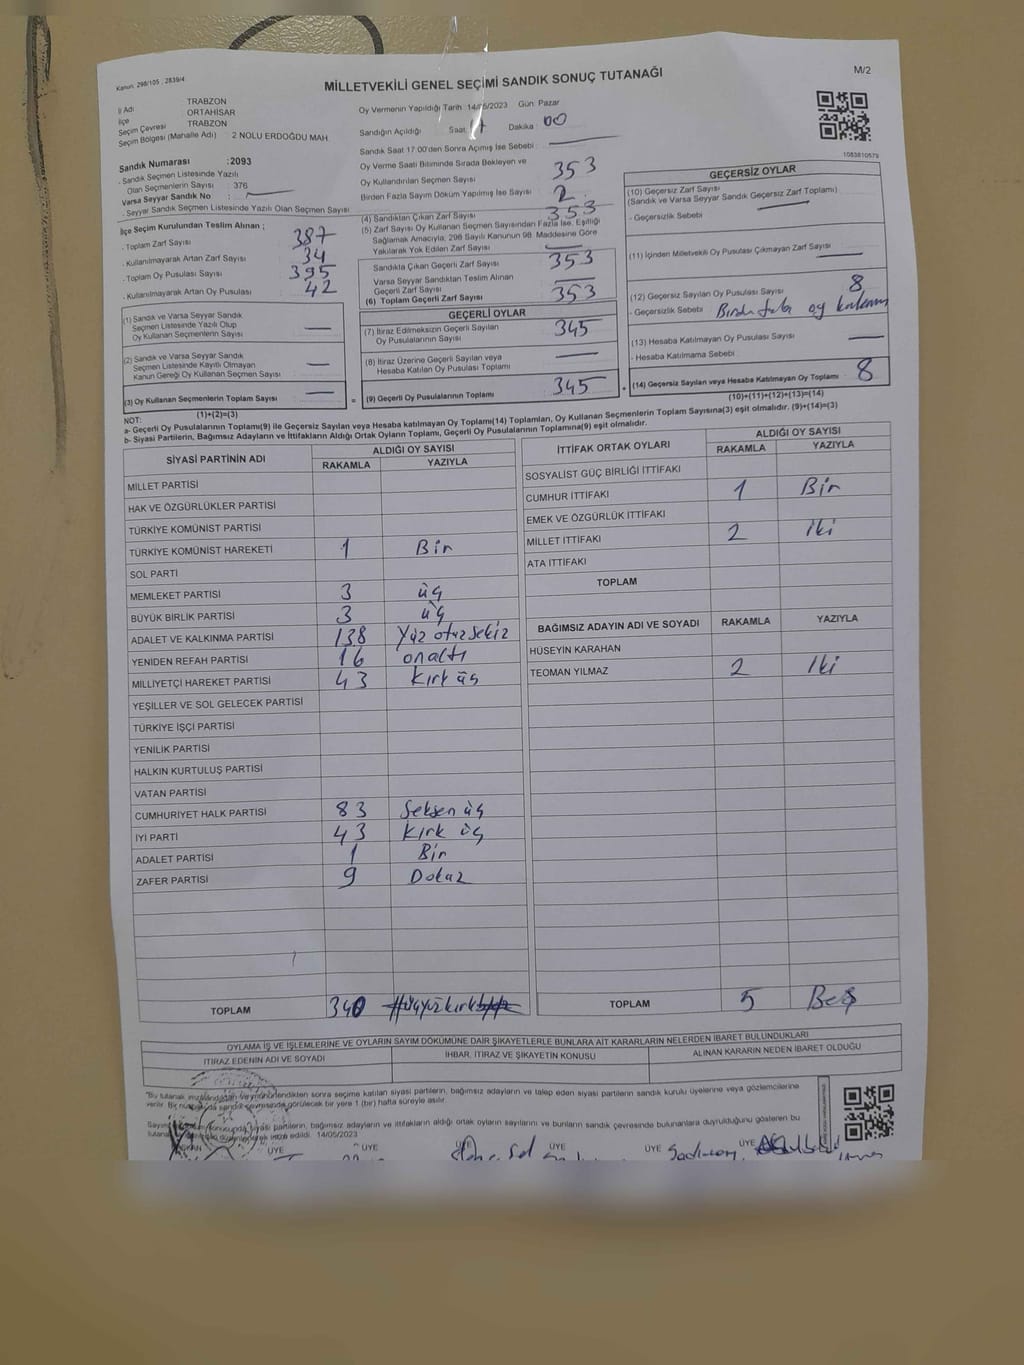 Kanun: 298/105 , 2839/4
MİLLETVEKİLİ GENEL SEÇİMİ SANDIK SONUÇ TUTANAĞI
M/2
İl Adı TRABZON
İlçe ORTAHİSAR
Seçim Çevresi TRABZON
Seçim Bölgesi (Mahalle Adı) 2 NOLU ERDOĞDU MAH.
Sandık Numarası :2093
- Sandık Seçmen Listesinde Yazılı
Olan Seçmenlerin Sayısı : 376
Varsa Seyyar Sandık No :
- Seyyar Sandık Seçmen Listesinde Yazılı Olan Seçmen Sayısı
İlçe Seçim Kurulundan Teslim Alınan ;
- Toplam Zarf Sayısı 387
- Kullanılmayarak Artan Zarf Sayısı 34
- Toplam Oy Pusulası Sayısı 395
- Kullanılmayarak Artan Oy Pusulası 42
(1) Sandık ve Varsa Seyyar Sandık
Seçmen Listesinde Yazılı Olup
Oy Kullanan Seçmenlerin Sayısı —
(2) Sandık ve Varsa Seyyar Sandık
Seçmen Listesinde Kayıtlı Olmayan
Kanun Gereği Oy Kullanan Seçmen Sayısı —
(3) Oy Kullanan Seçmenlerin Toplam Sayısı —
(1)+(2)=(3)
Oy Vermenin Yapıldığı Tarih 14/05/2023 Gün: Pazar
Sandığın Açıldığı Saat Dakika : 00
Sandık Saat 17:00'den Sonra Açımış İse Sebebi
Oy Verme Saati Bitiminde Sırada Bekleyen ve
Oy Kullandırılan Seçmen Sayısı 353
Birden Fazla Sayım Döküm Yapılmış İse Sayısı 2
(4) Sandıktan Çıkan Zarf Sayısı 353
(5) Zarf Sayısı Oy Kullanan Seçmen Sayısından Fazla İse, Eşitliği
Sağlamak Amacıyla, 298 Sayılı Kanunun 98. Maddesine Göre
Yakılarak Yok Edilen Zarf Sayısı —
Sandıkta Çıkan Geçerli Zarf Sayısı 353
Varsa Seyyar Sandıktan Teslim Alınan
Geçerli Zarf Sayısı —
(6) Toplam Geçerli Zarf Sayısı 353
GEÇERLİ OYLAR
(7) İtiraz Edilmeksizin Geçerli Sayılan
Oy Pusulasının Sayısı 345
(8) İtiraz Üzerine Geçerli Sayılan veya
Hesaba Katılan Oy Pusulası Toplamı —
= (9) Geçerli Oy Pusulalarının Toplamı 345 +
1083810579
GEÇERSİZ OYLAR
(10) Geçersiz Zarf Sayısı
(Sandık ve Varsa Seyyar Sandık Geçersiz Zarf Toplamı)
- Geçersizlik Sebebi
(11) İçinden Milletvekili Oy Pusulası Çıkmayan Zarf Sayısı —
(12) Geçersiz Sayılan Oy Pusulası Sayısı 8
- Geçersizlik Sebebi oy
(13) Hesaba Katılmayan Oy Pusulası Sayısı —
- Hesaba Katılmama Sebebi
(14) Geçersiz Sayılan veya Hesaba Katılmayan Oy Toplamı 8
(10)+(11)+(12)+(13)=(14)
NOT:
a- Geçerli Oy Pusulalarının Toplamı(9) ile Geçersiz Sayılan veya Hesaba katılmayan Oy Toplamı(14) Toplamları, Oy Kullanan Seçmenlerin Toplam Sayısına(3) eşit olmalıdır. (9)+(14)=(3)
b- Siyasi Partilerin, Bağımsız Adayların ve İttifakların Aldığı Ortak Oyların Toplamı, Geçerli Oy Pusulalarının Toplamına(9) eşit olmalıdır.
SİYASİ PARTİNİN ADI ALDIĞI OY SAYISI
RAKAMLA YAZIYLA
MİLLET PARTİSİ
HAK VE ÖZGÜRLÜKLER PARTİSİ
TÜRKİYE KOMÜNİST PARTİSİ
TÜRKİYE KOMÜNİST HAREKETİ 1 Bir
SOL PARTİ
MEMLEKET PARTİSİ 3 üç
BÜYÜK BİRLİK PARTİSİ 3 üç
ADALET VE KALKINMA PARTİSİ 138 Yüz otuz sekiz
YENİDEN REFAH PARTİSİ 16 onaltı
MİLLİYETÇİ HAREKET PARTİSİ 43 kırk üç
YEŞİLLER VE SOL GELECEK PARTİSİ
TÜRKİYE İŞÇİ PARTİSİ
YENİLİK PARTİSİ
HALKIN KURTULUŞ PARTİSİ
VATAN PARTİSİ
CUMHURİYET HALK PARTİSİ 83 Seksen üç
İYİ PARTİ 43 kırk üç
ADALET PARTİSİ 1 Bir
ZAFER PARTİSİ 9 Dokuz
TOPLAM 340 üçyüzkırk
İTTİFAK ORTAK OYLARI ALDIĞI OY SAYISI
RAKAMLA YAZIYLA
SOSYALİST GÜÇ BİRLİĞİ İTTİFAKI
CUMHUR İTTİFAKI 1 Bir
EMEK VE ÖZGÜRLÜK İTTİFAKI
MİLLET İTTİFAKI 2 iki
ATA İTTİFAKI
TOPLAM
BAĞIMSIZ ADAYIN ADI VE SOYADI RAKAMLA YAZIYLA
HÜSEYİN KARAHAN
TEOMAN YILMAZ 2 İki
TOPLAM 5 Beş
OYLAMA İŞ VE İŞLEMLERİNE VE OYLARIN SAYIM DÖKÜMÜNE DAİR ŞİKAYETLERLE BUNLARA AİT KARARLARIN NELERDEN İBARET BULUNDUKLARI
İTİRAZ EDENİN ADI VE SOYADI İHBAR, İTİRAZ VE ŞİKAYETİN KONUSU ALINAN KARARIN NEDEN İBARET OLDUĞU
"Bu tutanak, imzalandıktan ve mühürlendikten sonra seçime katılan siyasi partilerin, bağımsız adayların ve talep eden siyasi partilerin sandık kurulu üyelerine veya gözlemcilerine
verilir. Bir nüshası da sandık çevresinde görülecek bir yere 1 (bir) hafta süreyle asılır.
siyasi partilerin, bağımsız adayların ve ittifakların aldığı ortak oyların sayılarını ve bunların sandık çevresinde bulunanlara duyrulduğunu gösteren bu
edildi. 14/05/2023
ÜYE ÜYE ÜYE ÜYE ÜYE ÜYE